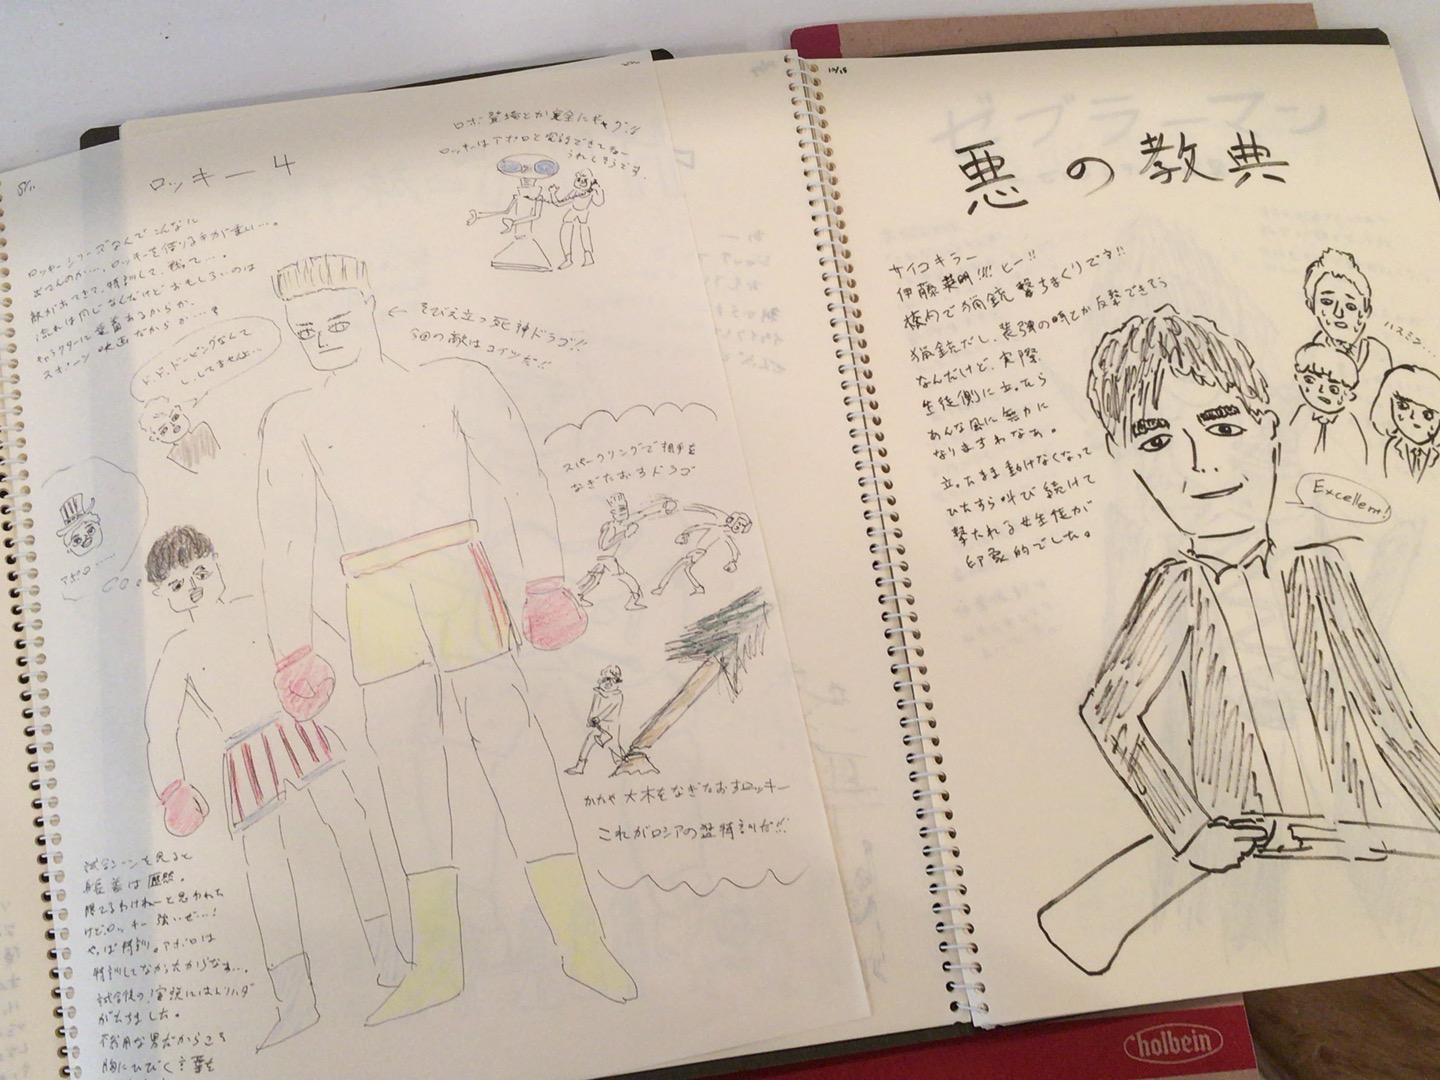 ロッキー4
ロッキーシリーズなんでこんなに
おもろいのか…、ロッキーを作りる手が重い…。
敵が出てきて、特訓して、戦って…。
流れは同じなんだけどおもしろいのは
キャラクターに愛着あるからか、
スポーツ映画だからか…?
ロボ登場とか完全にギャグw
ロッキーはアポロと
うれしそうです。
ド、ド、ドーピングなんて
し、してませんよ…
← そびえ立つ死神ドラゴ!!
今回の敵はコイツだ!!
アポロ……
スパーリングで相手を
なぎたおすドラゴ
かたや大木をなぎたおすロッキー
これがロシアの猛特訓だ!!
試合シーンを見ると
差は歴然。
勝てるわけねーと思われた
けどロッキー強いぜ…!
やっぱ特訓。アポロは
特訓してなかったからなぁ…。
試合後の演説にはトリハダ
がたちました。
不器用な男だからこそ
胸にひびく言葉を
10/15
悪の教典
サイコキラー
伊藤英明!!!! ヒー!!
校内で猟銃撃ちまくりです!!
猟銃だし、装弾の時とか反撃できそう
なんだけど、実際
生徒側に立ったら
あんな風に無力に
なりますわなぁ。
立ったまま動けなくなって
ひたすら叫び続けて
撃たれる女生徒が
印象的でした。
ハスミン…
Excellent!
holbein